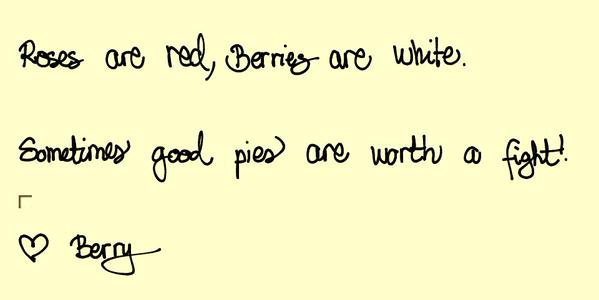 Roses are red, Berries are white.
Sometimes good pies are worth a fight!
♡ Berry